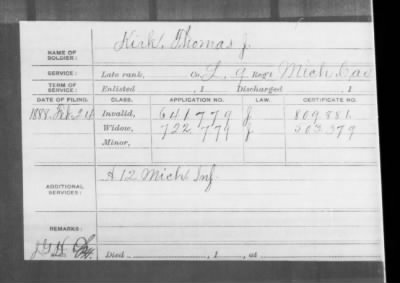 Kirk, Thomas J.
NAME OF
SOLDIER:
SERVICE: Late rank, Co. L, 9 Reg't Mich Cav
TERM OF
SERVICE: Enlisted , 1 Discharged , 1
DATE OF FILING. CLASS. APPLICATION NO. LAW. CERTIFICATE NO.
1888. Invalid, 641779 J 809881
Widow, 722779 J 503379
Minor,
ADDITIONAL
SERVICES: A 12 Mich Inf
REMARKS:
Died , 1 , at